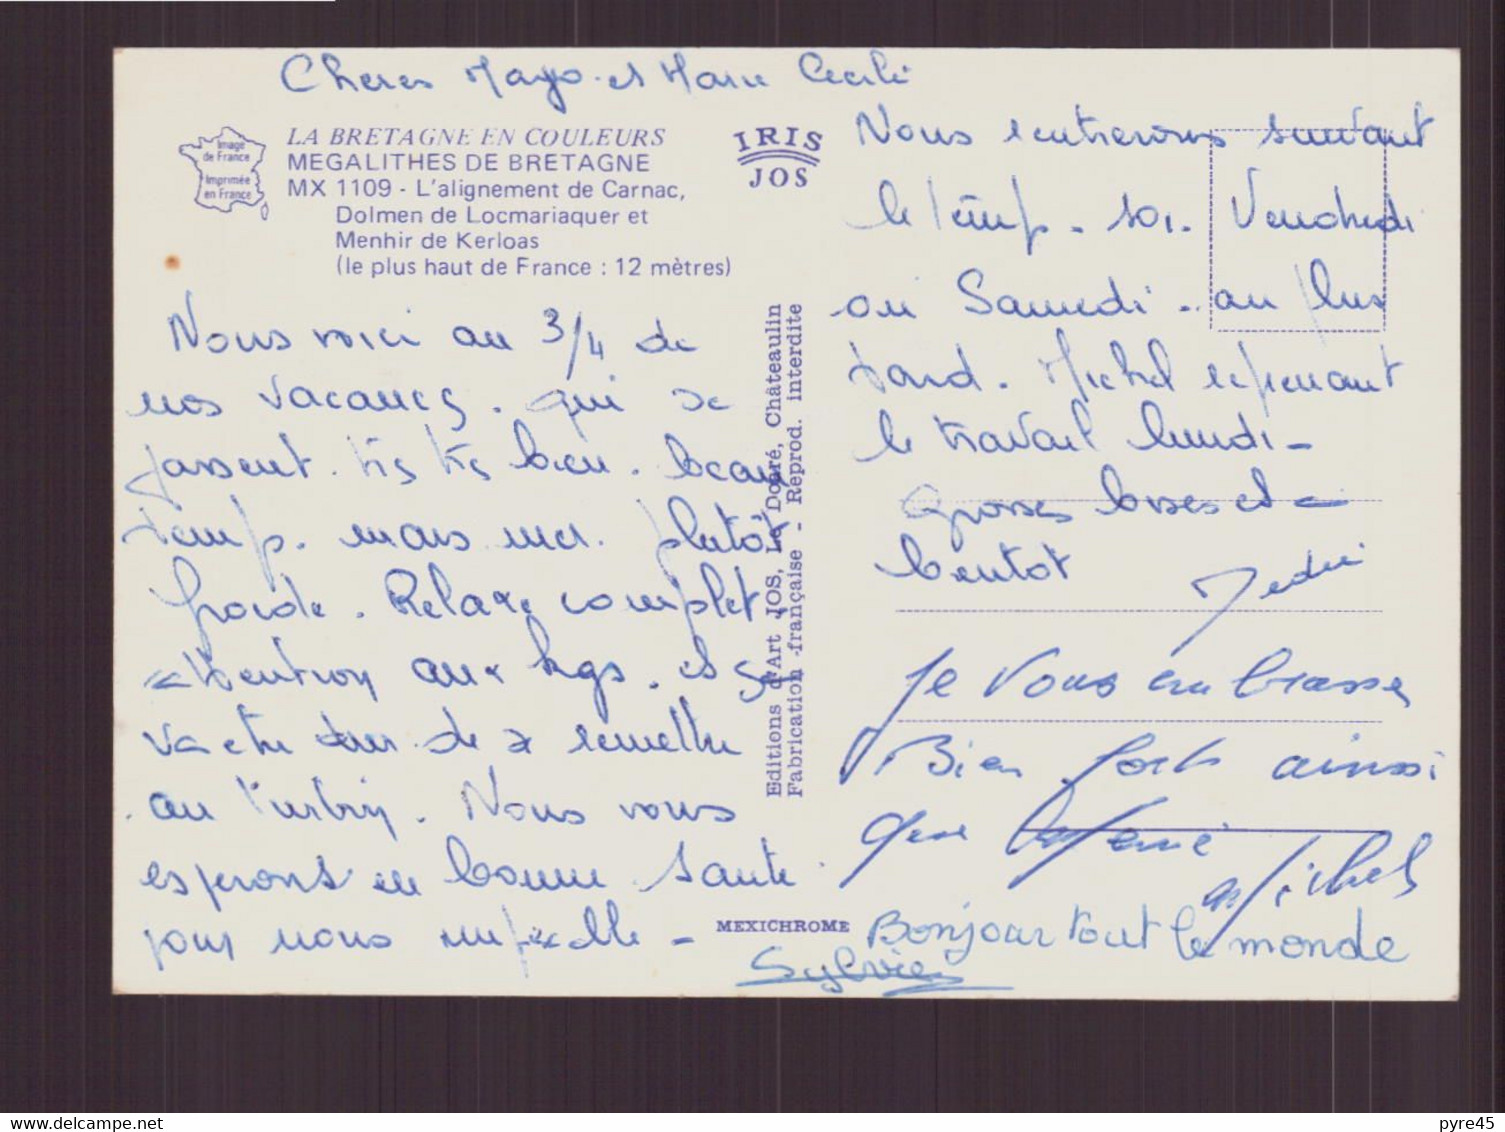 Cheres Mayo et Marie Cecile
Image
de France
Imprimée
en France
LA BRETAGNE EN COULEURS
MEGALITHES DE BRETAGNE
MX 1109 - L'alignement de Carnac,
Dolmen de Locmariaquer et
Menhir de Kerloas
(le plus haut de France : 12 mètres)
IRIS
JOS
Nous voici au 3/4 de
nos vacances. qui se
passent. très très bien. beau
temps. mais mer. plutôt
froide. Relaxe complet
attention aux kgs. et ça
va etre dur de se remettre
au turbin. Nous vous
esperons en bonne santé
pour nous impeccable -
Editions d'Art JOS, Le Doaré, Châteaulin
Fabrication française - Reprod. interdite
MEXICHROME
Nous rentrerons suivant
le temps. soi. Vendredi
ou Samedi - au plus
tard. Michel reprenant
le travail lundi -
Grosses bises et a
bientot
Je vous embrasse
Bien fort ainsi
que
Michel
Bonjour tout le monde
Sylvie
pyre45